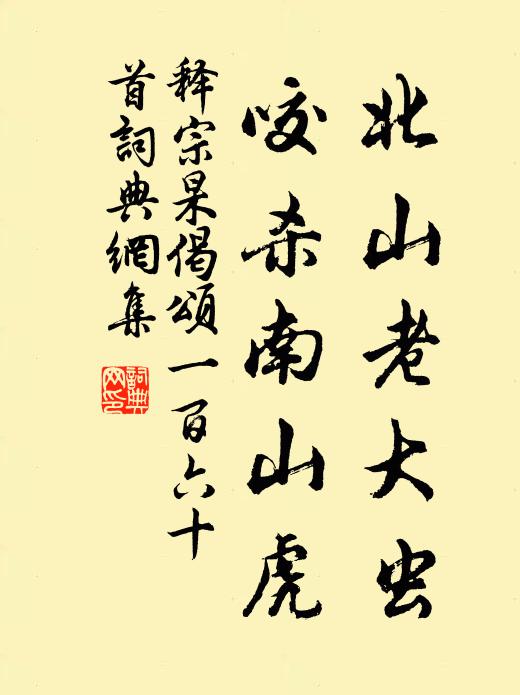 北山老大虫
咬杀南山虎
释宗杲偈頌一百六十
首詞典網集
詞典网印